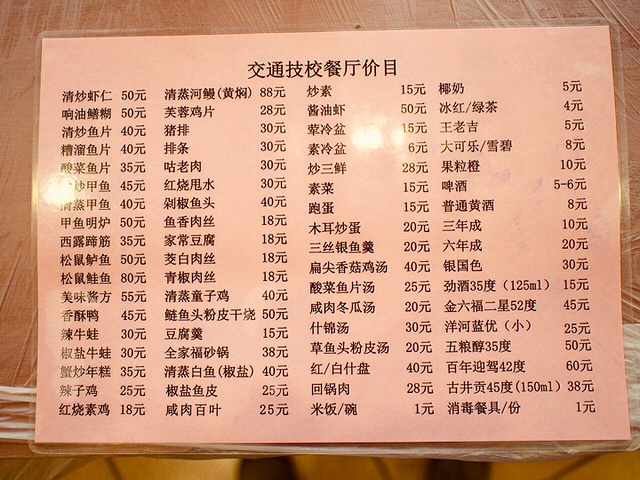 交通技校餐厅价目
清炒虾仁 50元 清蒸河鳗(黄焖) 88元 炒素 15元 椰奶 5元
响油鳝糊 50元 芙蓉鸡片 28元 酱油虾 50元 冰红/绿茶 4元
清炒鱼片 40元 猪排 30元 荤冷盆 15元 王老吉 5元
糟溜鱼片 40元 排条 30元 素冷盆 6元 大可乐/雪碧 8元
酸菜鱼片 35元 咕老肉 30元 炒三鲜 28元 果粒橙 10元
炒甲鱼 45元 红烧甩水 30元 素菜 15元 啤酒 5-6元
清蒸甲鱼 40元 剁椒鱼头 40元 跑蛋 15元 普通黄酒 8元
甲鱼明炉 50元 鱼香肉丝 18元 木耳炒蛋 20元 三年成 10元
西露蹄筋 35元 家常豆腐 18元 三丝银鱼羹 20元 六年成 20元
松鼠鲈鱼 50元 茭白肉丝 18元 扁尖香菇鸡汤 40元 银国色 30元
松鼠鲑鱼 80元 青椒肉丝 18元 酸菜鱼片汤 25元 劲酒35度（125ml） 15元
美味酱方 55元 清蒸童子鸡 40元 咸肉冬瓜汤 20元 金六福二星52度 45元
香酥鸭 45元 鲢鱼头粉皮干烧 50元 什锦汤 30元 洋河蓝优（小） 25元
辣牛蛙 30元 豆腐羹 15元 草鱼头粉皮汤 20元 五粮醇35度 50元
椒盐牛蛙 30元 全家福砂锅 38元 红/白什盘 40元 百年迎驾42度 60元
蟹炒年糕 35元 清蒸白鱼(椒盐) 40元 回锅肉 28元 古井贡45度(150ml) 38元
辣子鸡 25元 椒盐鱼皮 25元 米饭/碗 1元 消毒餐具/份 1元
红烧素鸡 18元 咸肉百叶 25元